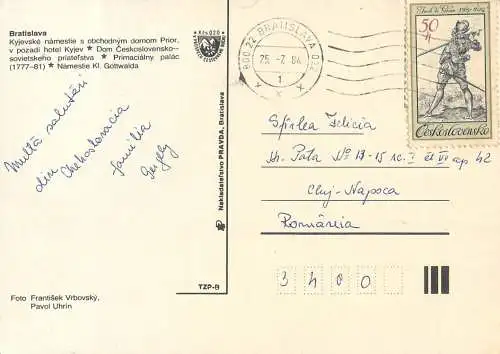 Bratislava
Kyjevské námestie s obchodným domom Prior,
v pozadí hotel Kyjev * Dom Československo-
sovietskeho priateľstva * Primaciálny palác
(1777–81) * Námestie Kl. Gottwalda
Multă salutări
din Chehoslovacia
familia
Gergely
Foto František Vrbovský,
Pavol Uhrin
Nakladateľstvo PRAVDA, Bratislava
TZP-B
800 22 BRATISLAVA 022
25.-7.84
1
x x x x
50 h
Československo
Felicia
Nº 13-15 sc. I et IV ap 42
Cluj-Napoca
România
3400